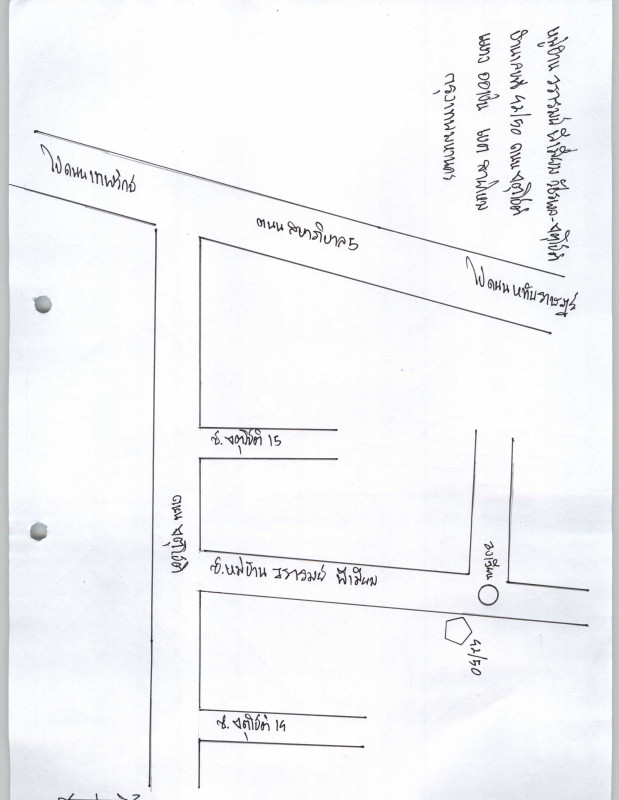 หมู่บ้าน วรารมย์ พรีเมียม วัชรพล-จตุโชติ
บ้านเลขที่ 42/50 ถนน จตุโชติ
แขวง ออเงิน เขต สายไหม
กรุงเทพมหานคร
ไปถนน เทพรักษ์
ถนน สุขาภิบาล 5
ไปถนน หทัยราษฎร์
ซ. จตุโชติ 15
ถนน จตุโชติ
ซ. หมู่บ้าน วรารมย์ พรีเมียม
วงเวียน
42/50
ซ. จตุโชติ 19